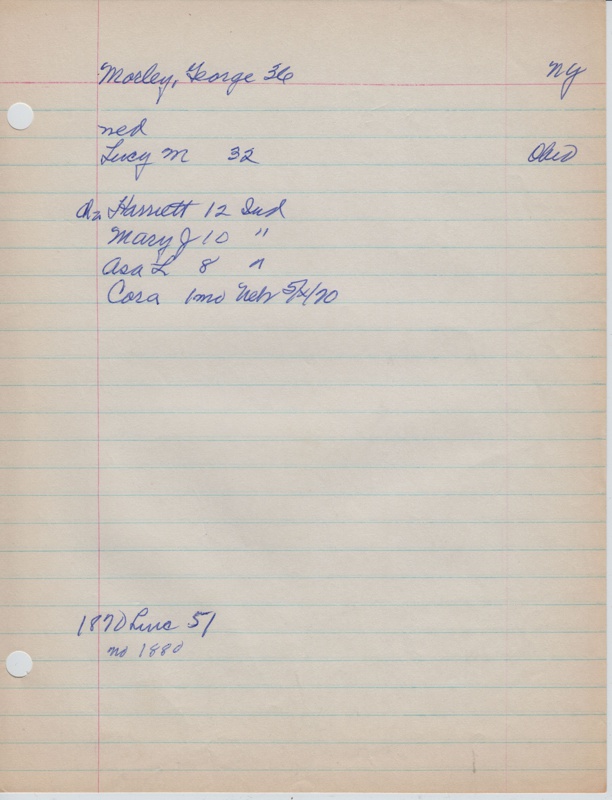 Morley, George 36 NY
med
Lucy M 32 Ohio
Ch= Harriett 12 Ind
Mary J 10 "
Asa L 8 "
Cora 1mo Neb 5/4/70
1870 Linc 51
no 1880